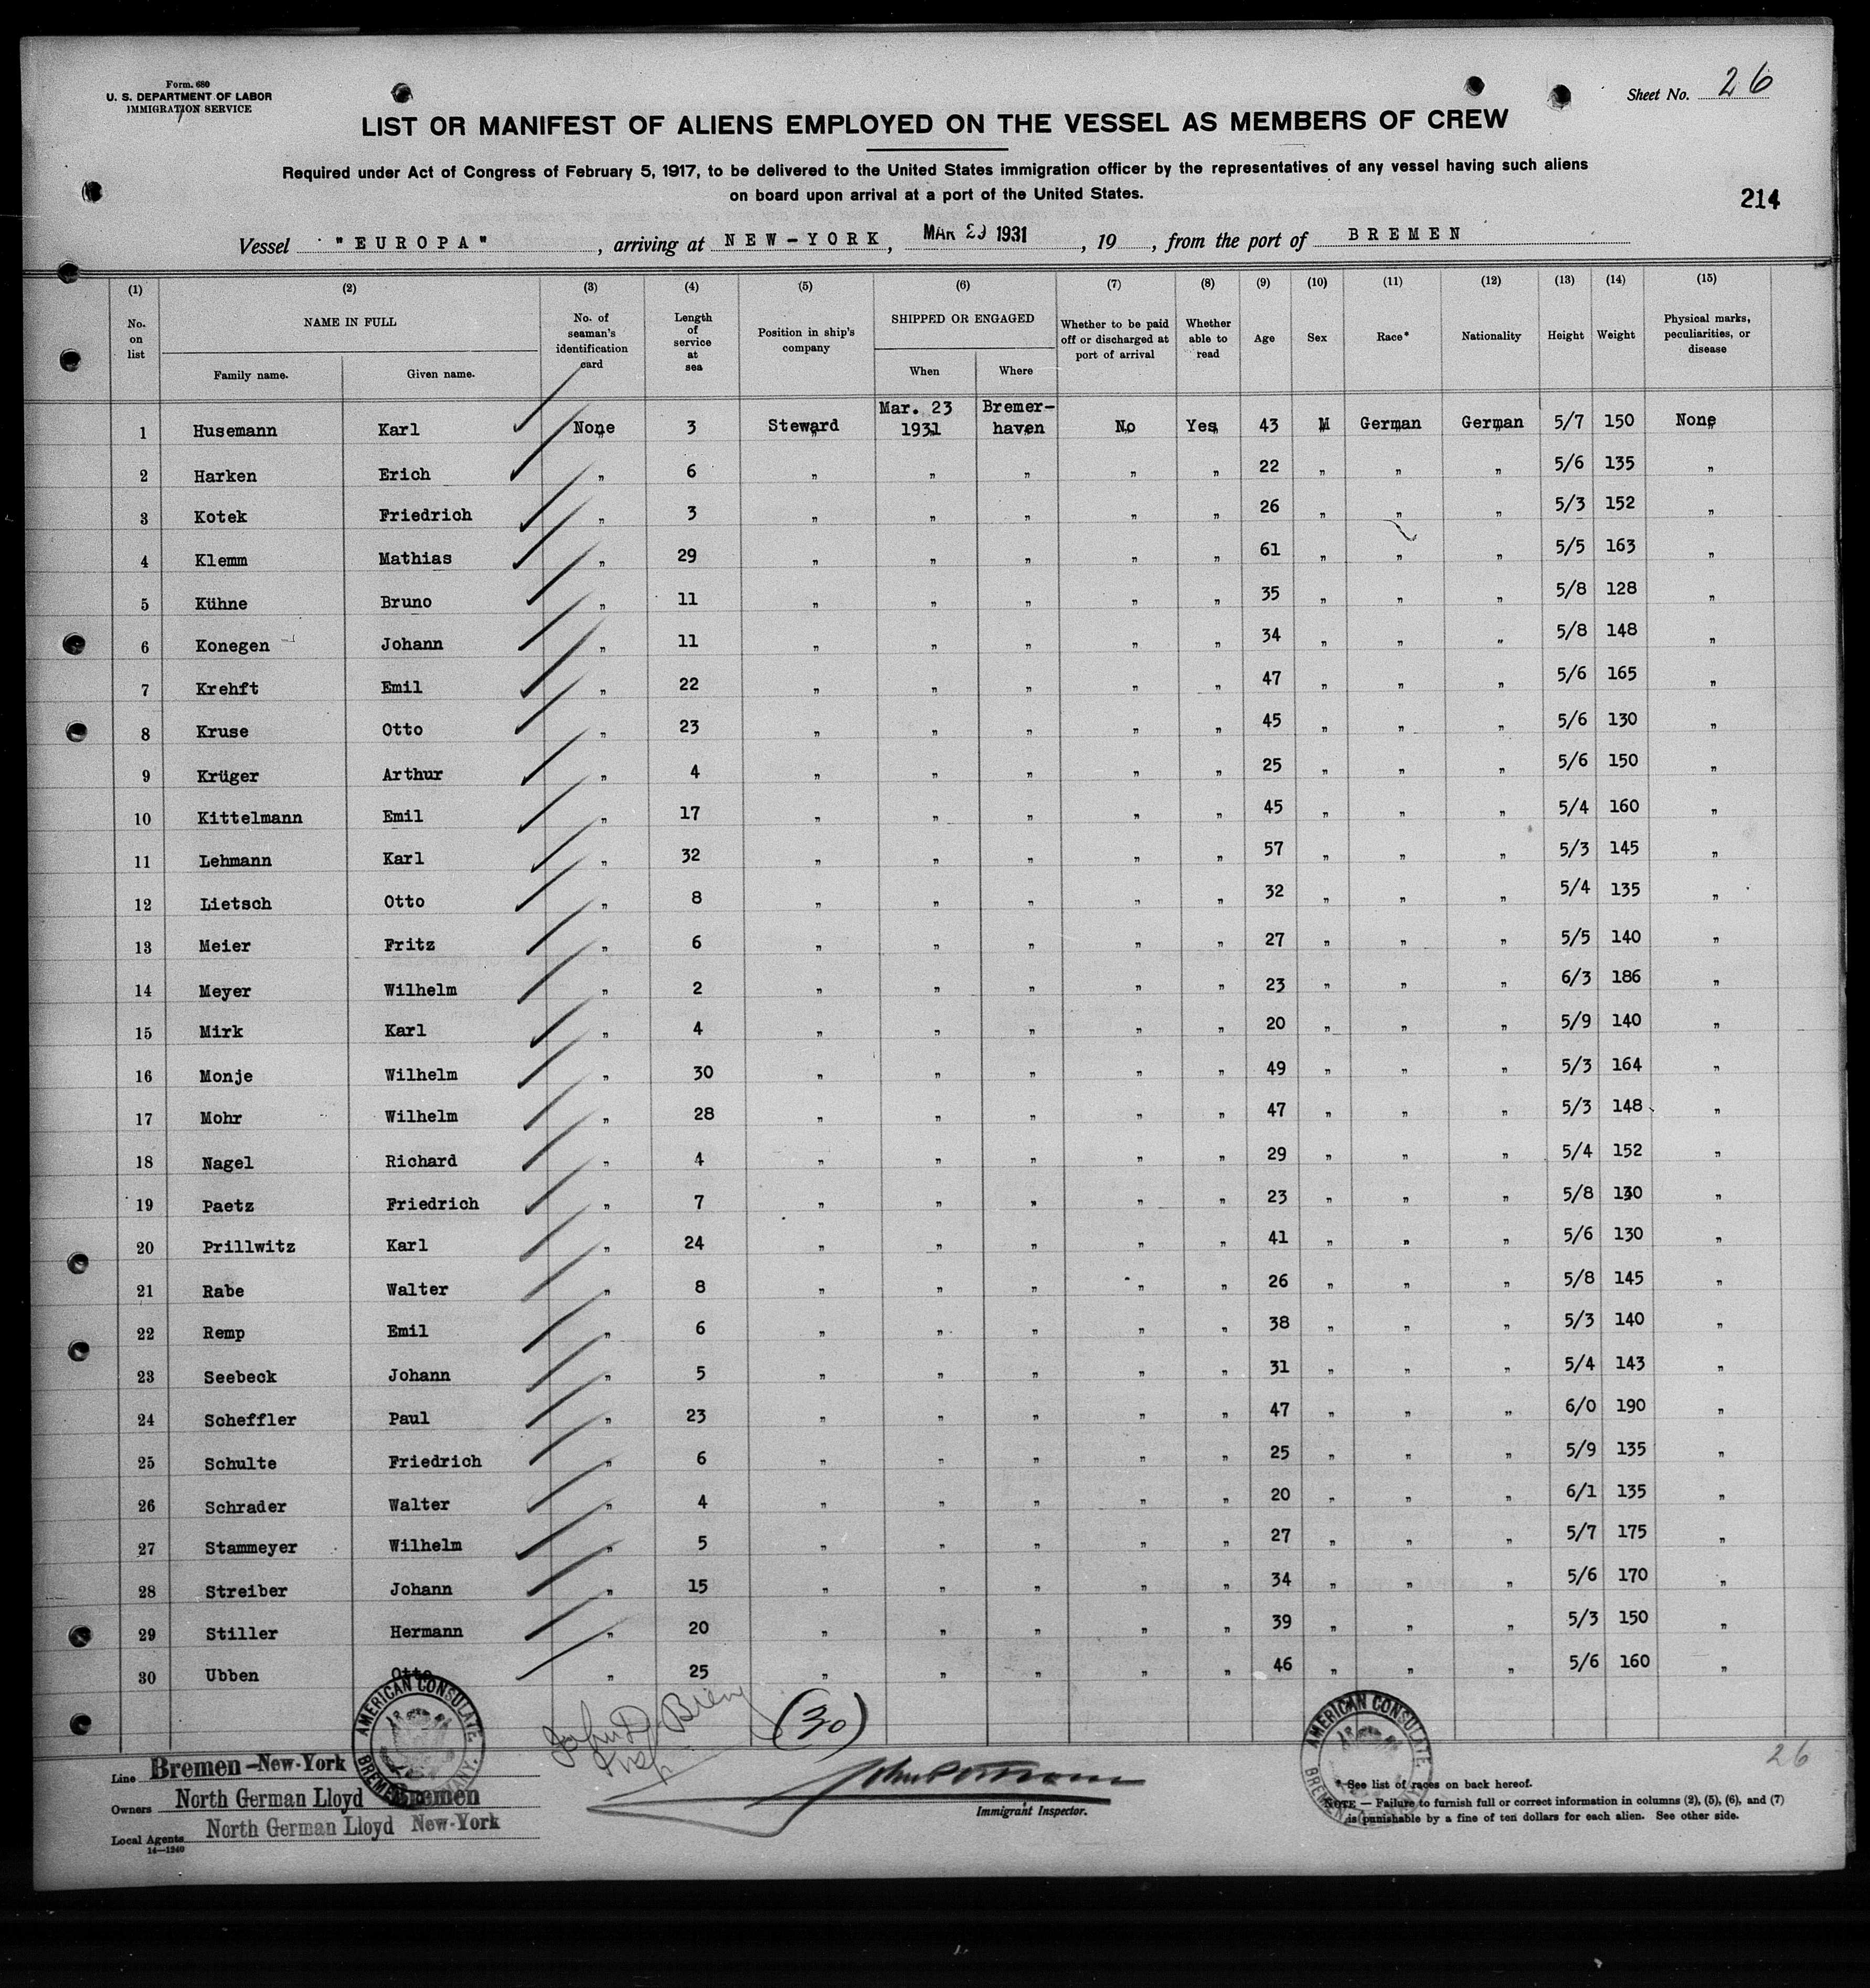 Form 680
U. S. DEPARTMENT OF LABOR
IMMIGRATION SERVICE
Sheet No. 26
LIST OR MANIFEST OF ALIENS EMPLOYED ON THE VESSEL AS MEMBERS OF CREW
Required under Act of Congress of February 5, 1917, to be delivered to the United States immigration officer by the representatives of any vessel having such aliens
on board upon arrival at a port of the United States.
214
Vessel "EUROPA", arriving at NEW-YORK, MAR 29 1931, 19 , from the port of BREMEN
(1) (2) (3) (4) (5) (6) (7) (8) (9) (10) (11) (12) (13) (14) (15)
No. on list NAME IN FULL Family name. Given name. No. of seaman's identification card Length of service at sea Position in ship's company SHIPPED OR ENGAGED When Where Whether to be paid off or discharged at port of arrival Whether able to read Age Sex Race* Nationality Height Weight Physical marks, peculiarities, or disease
1 Husemann Karl None 3 Steward Mar. 23 1931 Bremer-haven No Yes 43 M German German 5/7 150 None
2 Harken Erich " 6 " " " " " 22 " " " 5/6 135 "
3 Kotek Friedrich " 3 " " " " " 26 " " " 5/3 152 "
4 Klemm Mathias " 29 " " " " " 61 " " " 5/5 163 "
5 Kühne Bruno " 11 " " " " " 35 " " " 5/8 128 "
6 Konegen Johann " 11 " " " " " 34 " " " 5/8 148 "
7 Krehft Emil " 22 " " " " " 47 " " " 5/6 165 "
8 Kruse Otto " 23 " " " " " 45 " " " 5/6 130 "
9 Krüger Arthur " 4 " " " " " 25 " " " 5/6 150 "
10 Kittelmann Emil " 17 " " " " " 45 " " " 5/4 160 "
11 Lehmann Karl " 32 " " " " " 57 " " " 5/3 145 "
12 Lietsch Otto " 8 " " " " " 32 " " " 5/4 135 "
13 Meier Fritz " 6 " " " " " 27 " " " 5/5 140 "
14 Meyer Wilhelm " 2 " " " " " 23 " " " 6/3 186 "
15 Mirk Karl " 4 " " " " " 20 " " " 5/9 140 "
16 Monje Wilhelm " 30 " " " " " 49 " " " 5/3 164 "
17 Mohr Wilhelm " 28 " " " " " 47 " " " 5/3 148 "
18 Nagel Richard " 4 " " " " " 29 " " " 5/4 152 "
19 Paetz Friedrich " 7 " " " " " 23 " " " 5/8 130 "
20 Prillwitz Karl " 24 " " " " " 41 " " " 5/6 130 "
21 Rabe Walter " 8 " " " " " 26 " " " 5/8 145 "
22 Remp Emil " 6 " " " " " 38 " " " 5/3 140 "
23 Seebeck Johann " 5 " " " " " 31 " " " 5/4 143 "
24 Scheffler Paul " 23 " " " " " 47 " " " 6/0 190 "
25 Schulte Friedrich " 6 " " " " " 25 " " " 5/9 135 "
26 Schrader Walter " 4 " " " " " 20 " " " 6/1 135 "
27 Stammeyer Wilhelm " 5 " " " " " 27 " " " 5/7 175 "
28 Streiber Johann " 15 " " " " " 34 " " " 5/6 170 "
29 Stiller Hermann " 20 " " " " " 39 " " " 5/3 150 "
30 Ubben Otto " 25 " " " " " 46 " " " 5/6 160 "
(30)
AMERICAN CONSULATE BREMEN, GERMANY.
AMERICAN CONSULATE BREMEN, GERMANY.
26
Line Bremen-New-York
Owners North German Lloyd Bremen
Local Agents North German Lloyd New-York
14—1240
Immigrant Inspector.
* See list of races on back hereof.
NOTE — Failure to furnish full or correct information in columns (2), (5), (6), and (7)
is punishable by a fine of ten dollars for each alien. See other side.